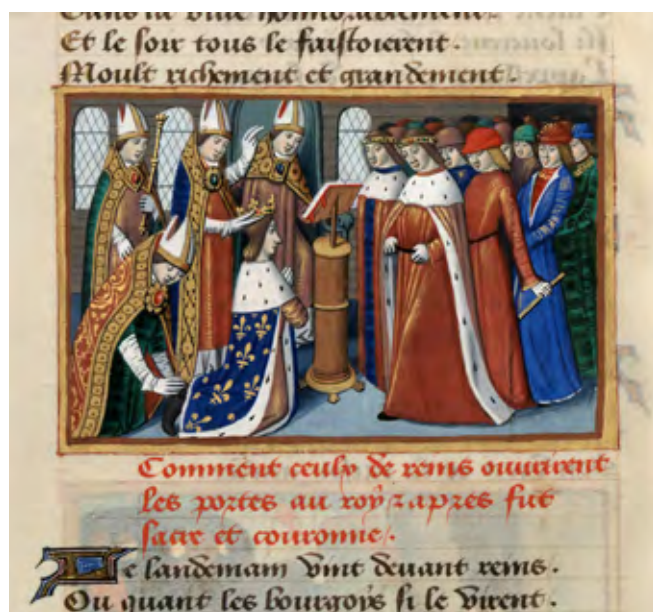 Dans la ville honnorablement.
Et le soir tous le faistoierent.
Moult richement et grandement.
Comment ceulx de reins ouvrirent
les portes au roy z apres fut
sacre et couronne.
Le landemain vint devant reins.
Ou quant les bourgoys si le virent.